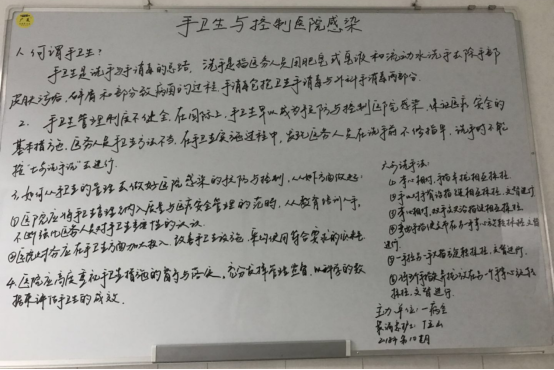 手卫生与控制医院感染
1、何谓手卫生?
手卫生是洗手与手消毒的总称。洗手是指医务人员用肥皂或皂液和流动水洗手去除手部
皮肤污垢、碎屑和部分致病菌的过程,手消毒包括卫生手消毒与外科手消毒两部分。
2、手卫生管理制度不健全,在国际上,手卫生早以成为预防与控制医院感染,保证医疗安全的
基本措施,医务人员手卫生方法不当,在手卫生实施过程中,发现医务人员在洗手前不修指甲,洗手时不能
按"七步洗手法"去进行。
3、如何从手卫生的管理去做好医院感染的预防与控制,从如下方面做起:
①医院应将手卫生管理纳入质量与医疗安全管理的范畴,从教育培训入手,
不断强化医务人员对手卫生重要性的认识。
②医院对各应在手卫生方面加大投入,改善手卫生设施,要使用符合要求的
4、医院应高度重视手卫生措施的首守与落实,充分发挥管理监督,以科学的数
据来评估手卫生的成效。
六步洗手法:
①掌心相对,手指并拢相互揉搓
②手心对手背沿指缝相互揉搓,交替进行
③掌心相对,双手交叉沿指缝相互揉搓
④弯曲手指使关节在另一手掌心旋转揉搓,交替
进行。
⑤一手握另一手大拇指旋转揉搓,交替进行。
⑥将五个手指尖并拢放在另一个手掌心旋转
揉搓,交替进行。
主办单位:一病室